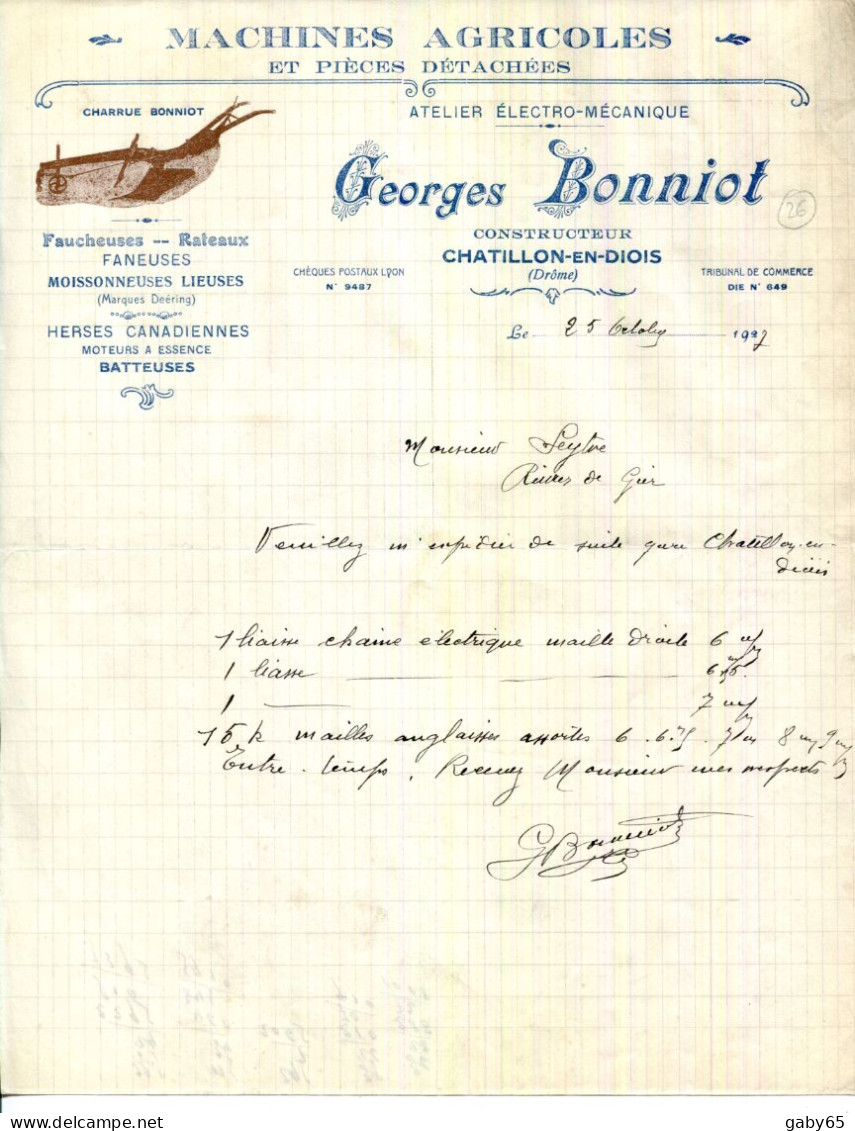 MACHINES AGRICOLES
ET PIÈCES DÉTACHÉES
CHARRUE BONNIOT
ATELIER ÉLECTRO-MÉCANIQUE
Georges Bonniot
26
CONSTRUCTEUR
CHATILLON-EN-DIOIS
(Drôme)
Faucheuses -- Rateaux
FANEUSES
MOISSONNEUSES LIEUSES
(Marques Deéring)
HERSES CANADIENNES
MOTEURS A ESSENCE
BATTEUSES
CHÈQUES POSTAUX LYON
N° 9487
TRIBUNAL DE COMMERCE
DIE N° 649
Le 25 Octobre 1927
Monsieur Seytre
Rives de Gier
Veuillez m'expédier de suite gare Chatillon-en-
diois
1 liasse chaine électrique maille droite 6 m/m
1 liasse 6
1 7 m/m
15 k mailles anglaises assorties 6. 7 8 9
Entre-temps, Recevez Monsieur mes respects
GBonniot
gaby65